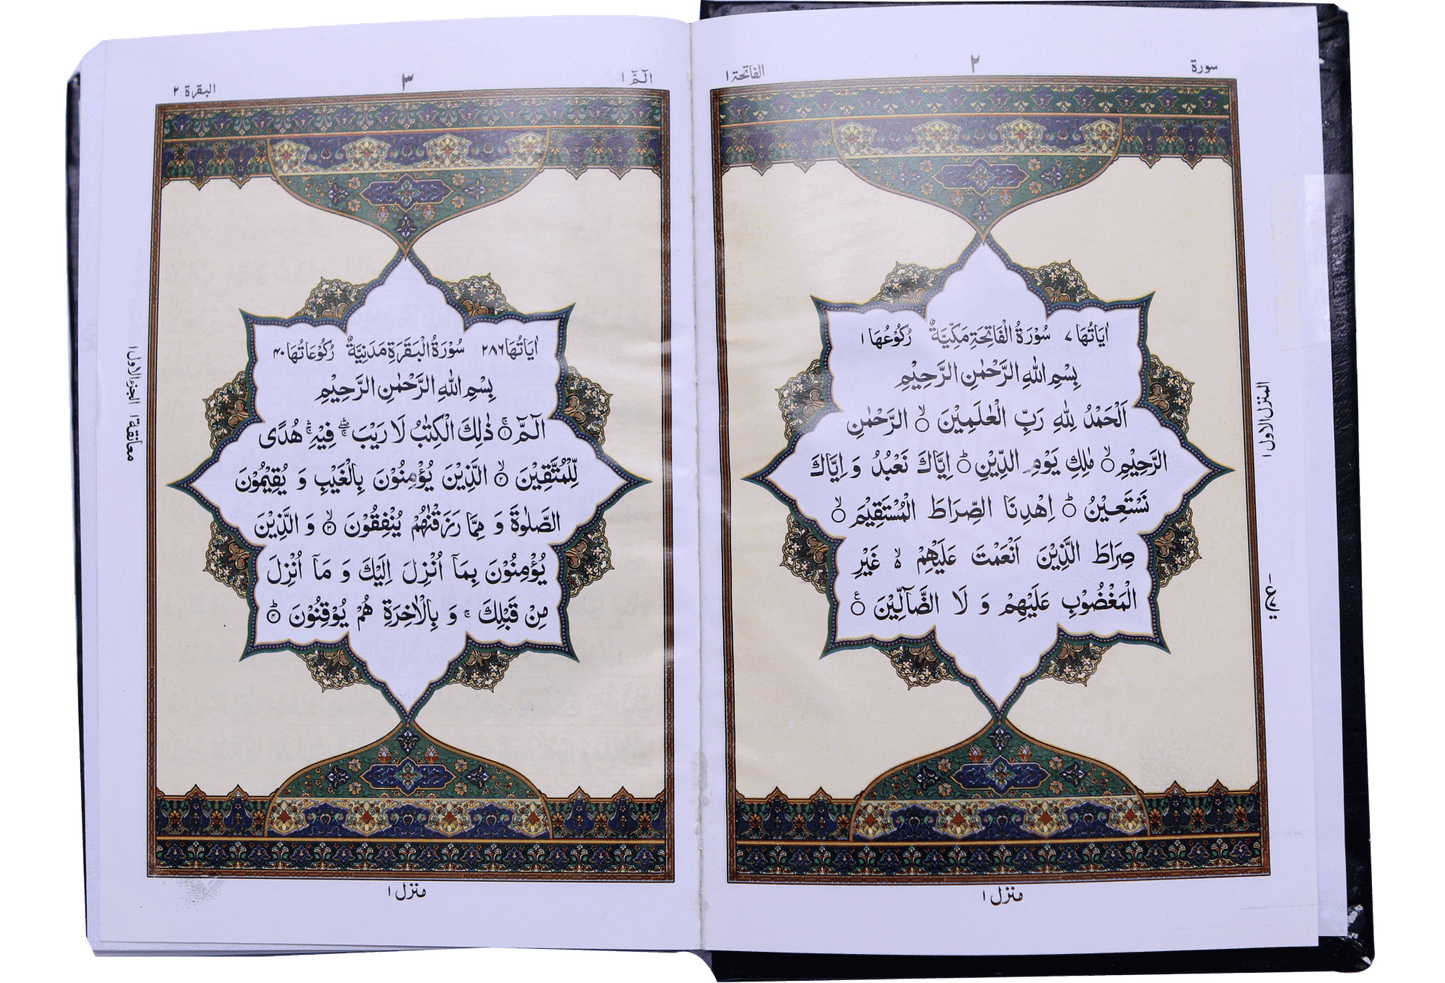 سورة
٢
الفاتحة ١
اٰيَاتُهَا ٧ سُوْرَةُ الْفَاتِحَةِ مَكِّيَّةٌ رُكُوْعُهَا ١
بِسْمِ اللهِ الرَّحْمٰنِ الرَّحِيْمِ
اَلْحَمْدُ لِلّٰهِ رَبِّ الْعٰلَمِيْنَ ۙ الرَّحْمٰنِ
الرَّحِيْمِ ۙ مٰلِكِ يَوْمِ الدِّيْنِ ؕ اِيَّاكَ نَعْبُدُ وَ اِيَّاكَ
نَسْتَعِيْنُ ؕ اِهْدِنَا الصِّرَاطَ الْمُسْتَقِيْمَ ۙ
صِرَاطَ الَّذِيْنَ اَنْعَمْتَ عَلَيْهِمْ ۙ غَيْرِ
الْمَغْضُوْبِ عَلَيْهِمْ وَ لَا الضَّآلِّيْنَ
المنزل الاول ١
منزل ١
الٓمّٓ ١
٣
البقرة ٢
اٰيَاتُهَا ٢٨٦ سُوْرَةُ الْبَقَرَةِ مَدَنِيَّةٌ رُكُوْعَاتُهَا ٤٠
بِسْمِ اللهِ الرَّحْمٰنِ الرَّحِيْمِ
الٓمّٓ ۚ ذٰلِكَ الْكِتٰبُ لَا رَيْبَ ۛ فِيْهِ ۛ هُدًى
لِّلْمُتَّقِيْنَ ۙ الَّذِيْنَ يُؤْمِنُوْنَ بِالْغَيْبِ وَ يُقِيْمُوْنَ
الصَّلٰوةَ وَ مِمَّا رَزَقْنٰهُمْ يُنْفِقُوْنَ ۙ وَ الَّذِيْنَ
يُؤْمِنُوْنَ بِمَآ اُنْزِلَ اِلَيْكَ وَ مَآ اُنْزِلَ
مِنْ قَبْلِكَ ۚ وَ بِالْاٰخِرَةِ هُمْ يُوْقِنُوْنَ ؕ
الجزء الاول ١
معانقة ١
منزل ١